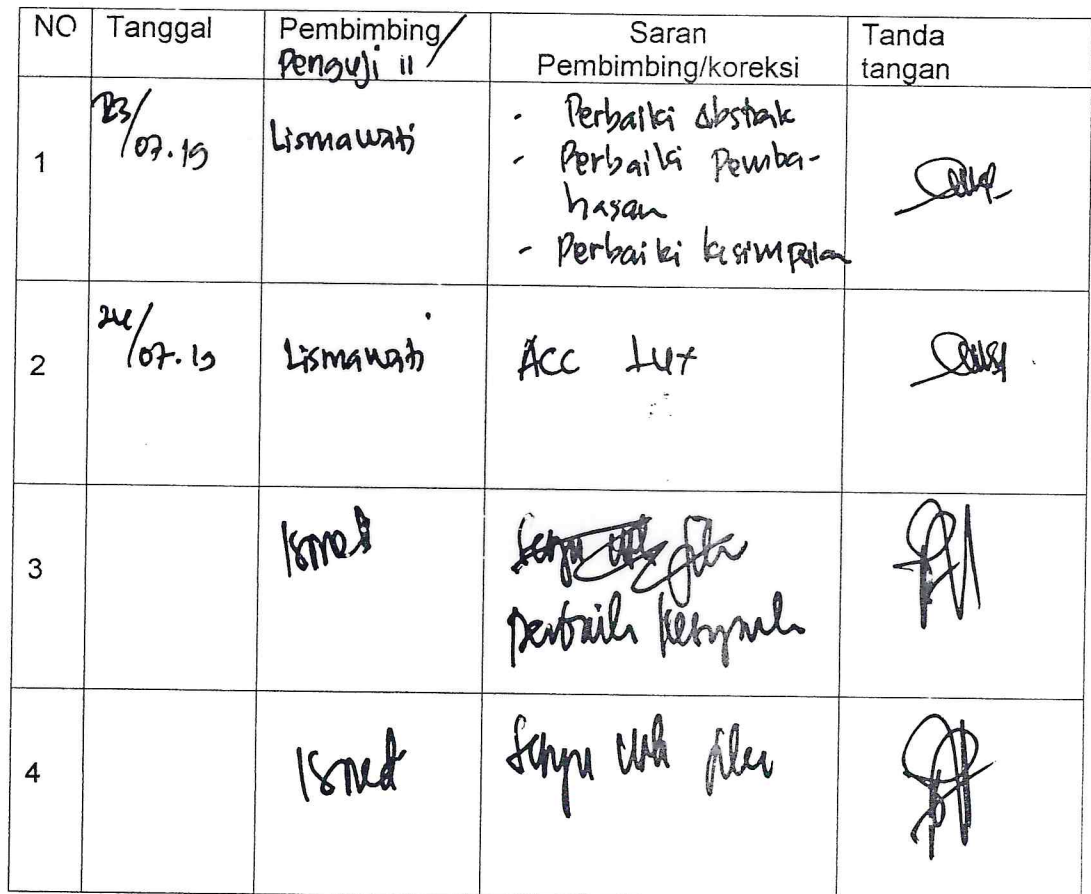 NO Tanggal Pembimbing/ Saran Tanda
Penguji II Pembimbing/koreksi tangan
1 23/07.19 Lismawati - Perbaiki Abstrak
- Perbaiki Pemba-
hasan
- Perbaiki kesimpulan
2 24/07.19 Lismawati Acc
3 Ismed
perbaiki
4 Ismed